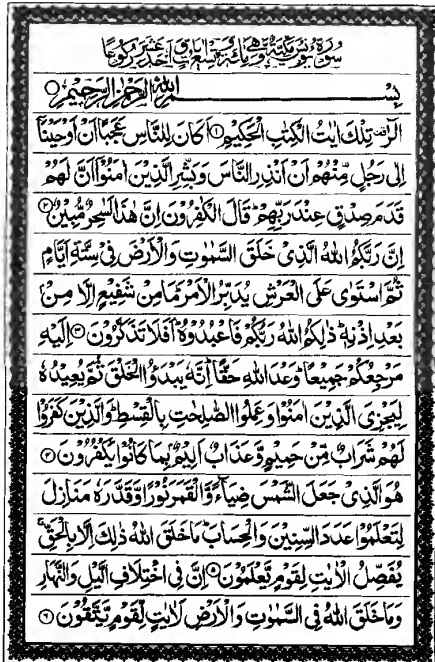 سورة يونس مكية وهى مائة وتسع ايات و احد عشر ركوعا
بسم الله الرحمن الرحيم
الٓرٰ تِلْكَ اٰيٰتُ الْكِتٰبِ الْحَكِيْمِ ۝۱ اَكَانَ لِلنَّاسِ عَجَبًا اَنْ اَوْحَيْنَاۤ
اِلٰى رَجُلٍ مِّنْهُمْ اَنْ اَنْذِرِ النَّاسَ وَبَشِّرِ الَّذِيْنَ اٰمَنُوْۤا اَنَّ لَهُمْ
قَدَمَ صِدْقٍ عِنْدَ رَبِّهِمْ ؕ قَالَ الْكٰفِرُوْنَ اِنَّ هٰذَا لَسٰحِرٌ مُّبِيْنٌ ۝۲
اِنَّ رَبَّكُمُ اللّٰهُ الَّذِيْ خَلَقَ السَّمٰوٰتِ وَالْاَرْضَ فِيْ سِتَّةِ اَيَّامٍ
ثُمَّ اسْتَوٰى عَلَى الْعَرْشِ يُدَبِّرُ الْاَمْرَ ؕ مَا مِنْ شَفِيْعٍ اِلَّا مِنْۢ
بَعْدِ اِذْنِهٖ ؕ ذٰلِكُمُ اللّٰهُ رَبُّكُمْ فَاعْبُدُوْهُ ؕ اَفَلَا تَذَكَّرُوْنَ ۝۳ اِلَيْهِ
مَرْجِعُكُمْ جَمِيْعًا ؕ وَعْدَ اللّٰهِ حَقًّا ؕ اِنَّهٗ يَبْدَؤُا الْخَلْقَ ثُمَّ يُعِيْدُهٗ
لِيَجْزِيَ الَّذِيْنَ اٰمَنُوْا وَعَمِلُوا الصّٰلِحٰتِ بِالْقِسْطِ ؕ وَالَّذِيْنَ كَفَرُوْا
لَهُمْ شَرَابٌ مِّنْ حَمِيْمٍ وَّعَذَابٌ اَلِيْمٌۢ بِمَا كَانُوْا يَكْفُرُوْنَ ۝۴
هُوَ الَّذِيْ جَعَلَ الشَّمْسَ ضِيَآءً وَّالْقَمَرَ نُوْرًا وَّقَدَّرَهٗ مَنَازِلَ
لِتَعْلَمُوْا عَدَدَ السِّنِيْنَ وَالْحِسَابَ ؕ مَا خَلَقَ اللّٰهُ ذٰلِكَ اِلَّا بِالْحَقِّ ۚ
يُفَصِّلُ الْاٰيٰتِ لِقَوْمٍ يَّعْلَمُوْنَ ۝۵ اِنَّ فِي اخْتِلَافِ الَّيْلِ وَالنَّهَارِ
وَمَا خَلَقَ اللّٰهُ فِي السَّمٰوٰتِ وَالْاَرْضِ لَاٰيٰتٍ لِّقَوْمٍ يَّتَّقُوْنَ ۝۶